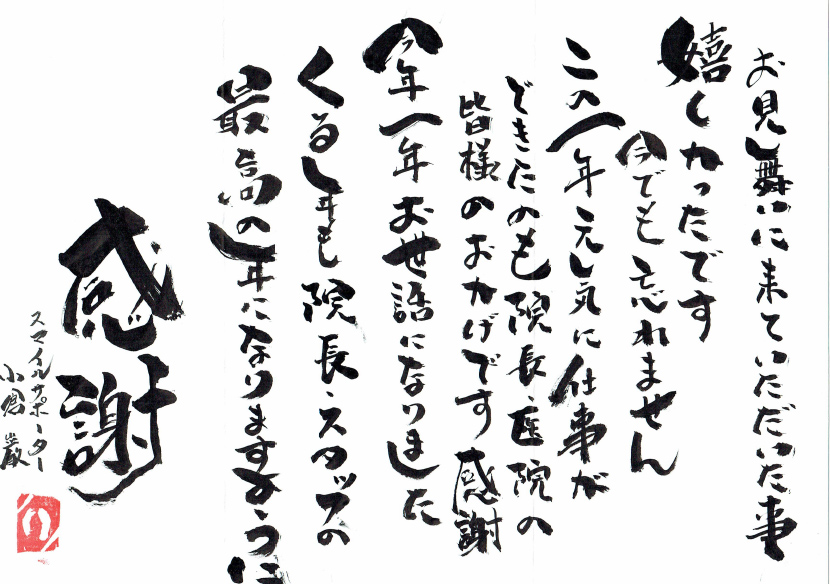 お見舞いに来ていただいた事
嬉しかったです
今でも忘れません
この一年元気に仕事が
できたのも院長・医院の
皆様のおかげです感謝
今年一年お世話になりました
くる年も院長・スタッフの
最高の年になりますように
感謝
スマイルサポーター
小倉 巌